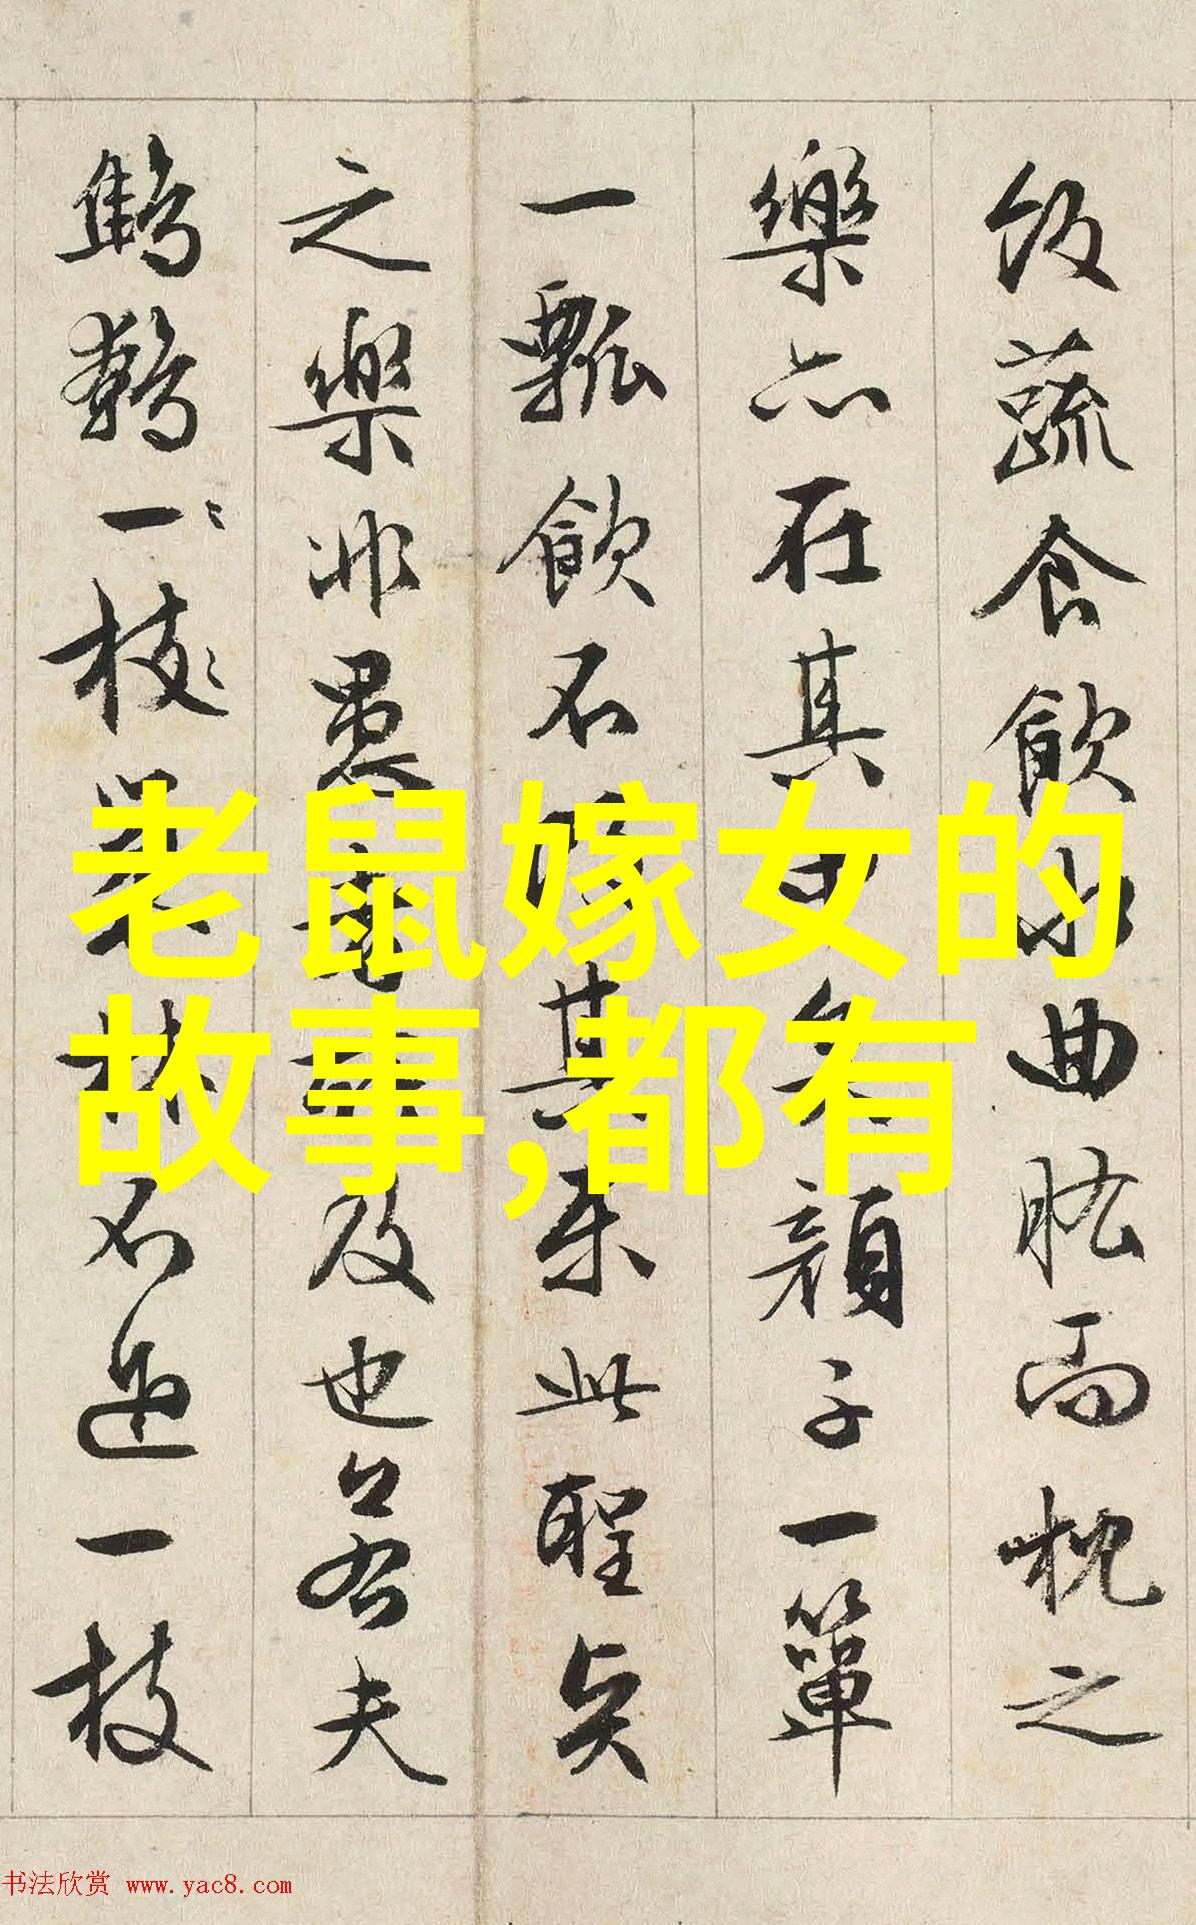 飯蔬食飲水曲肱而枕之
樂亦在其中矣顏子一簞
一瓢飲不其樂此聖賢
之樂非愚者及也若夫
鷦鷯一枝巢林不過一枝
老鼠嫁女的
故事,都有
书法欣赏 www.yac8.com